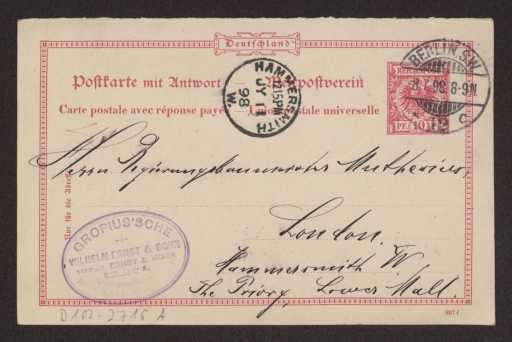 Deutschland
Postkarte mit Antwort Weltpostverein
Carte postale avec réponse payée Union postale universelle
HAMMERSMITH
12.15PM
JY 11
98
W.
BERLIN S.W.
98 8-9N
12 c
REICHSPOST
PF. 10 PF.
Herrn Regierungsbaumeister Muthesius,
London.
Hammersmith W
The Priory, Lower Mall.
Nur für die
GROPIUS'SCHE
WILHELM ERNST & SOHN
D 102-2716 A